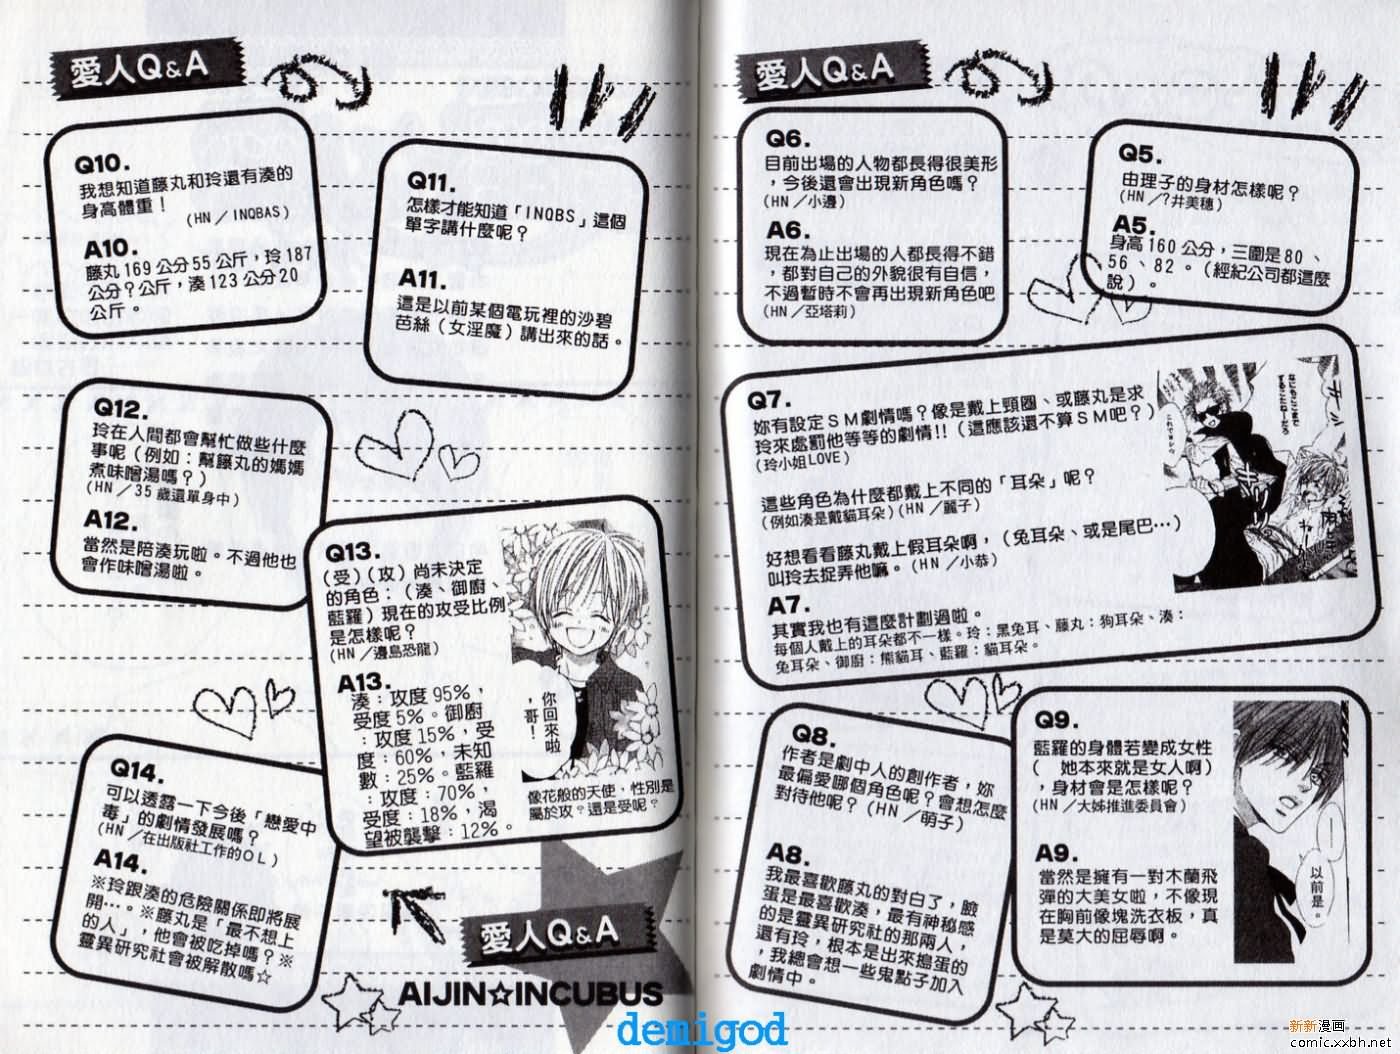 愛人Q&A
Q5.
由理子的身材怎樣呢？
(HN／?井美穗)
A5.
身高160公分，三圍是80、
56、82。（經紀公司都這麼
說）。
Q6.
目前出場的人物都長得很美形
，今後還會出現新角色嗎？
(HN／小邊)
A6.
現在為止出場的人都長得不錯
，都對自己的外貌很有自信，
不過暫時不會再出現新角色吧
(HN／亞塔莉)
Q7.
妳有設定ＳＭ劇情嗎？像是戴上頸圈、或藤丸是求
玲來處罰他等等的劇情!!（這應該還不算ＳＭ吧？）
(玲小姐LOVE)
這些角色為什麼都戴上不同的「耳朵」呢？
(例如湊是戴貓耳朵)(HN／麗子)
好想看看藤丸戴上假耳朵啊，（兔耳朵、或是尾巴…）
叫玲去捉弄他嘛。(HN／小恭)
A7.
其實我也有這麼計劃過啦。
每個人戴上的耳朵都不一樣。玲：黑兔耳、藤丸：狗耳朵、湊：
兔耳朵、御廚：熊貓耳、藍羅：貓耳朵。
Q8.
作者是劇中人的創作者，妳
最偏愛哪個角色呢？會想怎麼
對待他呢？(HN／萌子)
A8.
我最喜歡藤丸的對白了，臉
蛋是最喜歡湊，最有神秘感
的是靈異研究社的那兩人，
還有玲，根本是出來搗蛋的
，我總會想一些鬼點子加入
劇情中。
Q9.
藍羅的身體若變成女性
（ 她本來就是女人啊）
，身材會是怎樣呢？
(HN／大姊推進委員會)
A9.
當然是擁有一對木蘭飛
彈的大美女啦，不像現
在胸前像塊洗衣板，真
是莫大的屈辱啊。
以前是。
愛人Q&A
Q10.
我想知道藤丸和玲還有湊的
身高體重！
(HN／INQBAS)
A10.
藤丸169公分55公斤，玲187
公分?公斤，湊123公分20
公斤。
Q11.
怎樣才能知道「INQBS」這個
單字講什麼呢？
A11.
這是以前某個電玩裡的沙碧
芭絲（女淫魔）講出來的話。
Q12.
玲在人間都會幫忙做些什麼
事呢（例如：幫籐丸的媽媽
煮味噌湯嗎？）
(HN／35歲還單身中)
A12.
當然是陪湊玩啦。不過他也
會作味噌湯啦。
Q13.
(受)(攻)尚未決定
的角色：（湊、御廚、
藍羅）現在的攻受比例
是怎樣呢？
(HN／邊島恐龍)
A13.
湊：攻度95%，
受度5%。御廚
：攻度15%，受
度：60%，未知
數：25%。藍羅
：攻度：70%，
受度：18%，渴
望被襲擊：12%。
你回來啦
，哥！
像花般的天使，性別是
屬於攻？還是受呢？
Q14.
可以透露一下今後「戀愛中
毒」的劇情發展嗎？
(HN／在出版社工作的ＯＬ)
A14.
※玲跟湊的危險關係即將展
開…。※藤丸是「最不想上
的人」，他會被吃掉嗎？※
靈異研究社會被解散嗎☆
愛人Q&A
AIJIN☆INCUBUS
demigod
新新漫画
comic.xxbh.net